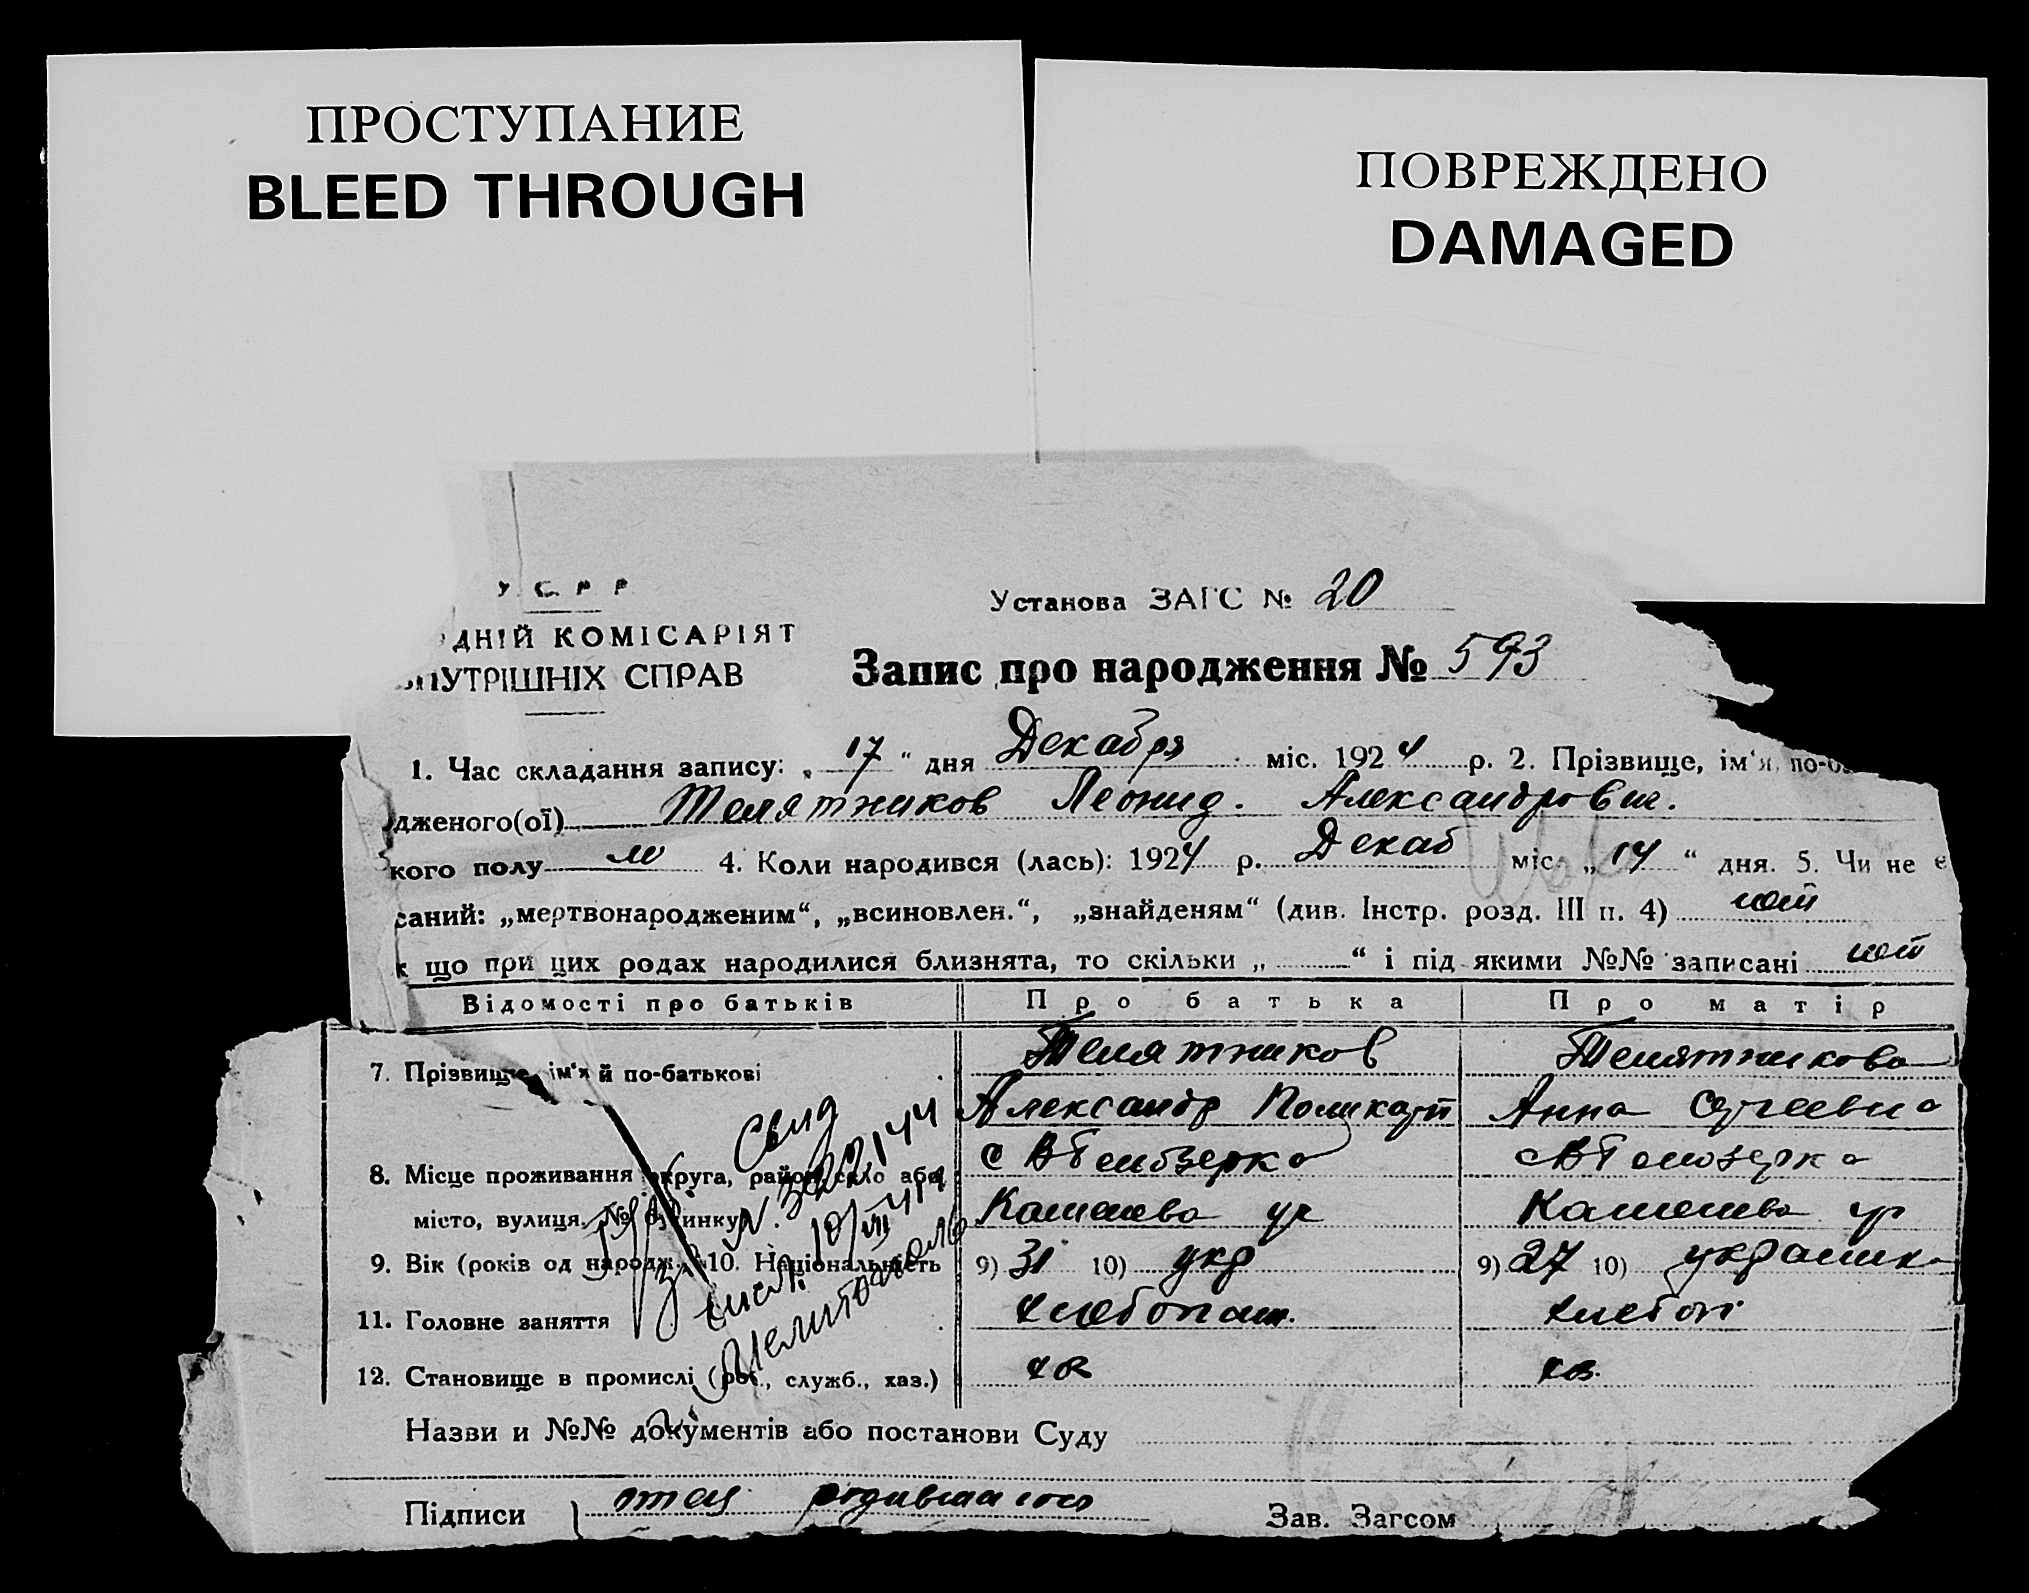 ПРОСТУПАНИЕ
BLEED THROUGH
ПОВРЕЖДЕНО
DAMAGED
У. С. Р. Р.
Установа ЗАГС № 20
ДНІЙ КОМІСАРІЯТ
НУТРІШНІХ СПРАВ
Запис про народження № 593
1. Час складання запису: „ 17 “ дня Декабря міс. 1924 р. 2. Прізвище, ім'я, по-б
дженого(ої) Телятников Леонид. Александрович.
кого полу м 4. Коли народився (лась): 1924 р. Декаб міс. „ 14 “ дня. 5. Чи не є
саний: „мертвонародженим“, „всиновлен.“, „знайденям“ (див. Інстр. розд. III п. 4) нет
к що при цих родах народилися близнята, то скільки „ “ і під якими №№ записані нет
Відомості про батьків Про батька Про матір
7. Прізвище, ім'я й по-батькові Телятников Телятникова
Александр Поликарп Анна Сергеевна
8. Місце проживання округа, район, село або с В Белозерка с В Белозерка
місто, вулиця, № будинку Каменева ул
9. Вік (років од народж.) 10. Національність 9) 31 10) укр 9) 27 10) украинка
11. Головне заняття хлебопаш. хлебоп
12. Становище в промислі (роб., служб., хаз.) хоз хоз.
Свид
N. 322144
10/VIII 44
Мелитополь
Назви и №№ документів або постанови Суду
Підписи } отец родившагося Зав. Загсом